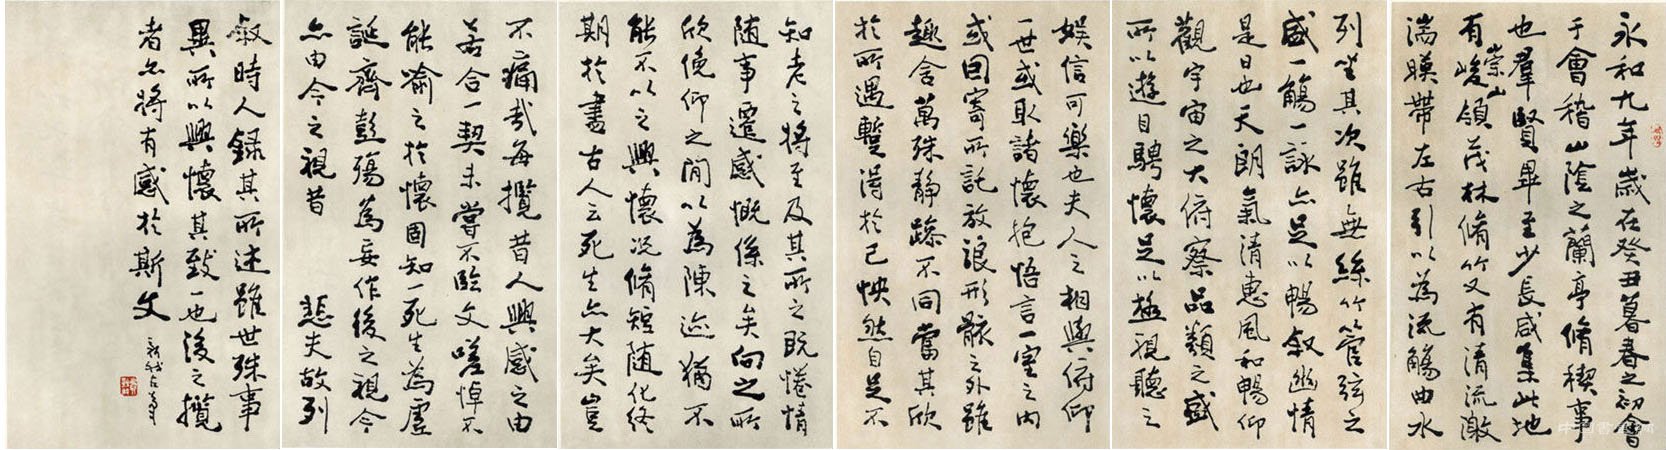 永和九年歲在癸丑暮春之初會
于會稽山陰之蘭亭脩禊事
也羣賢畢至少長咸集此地
有崇山峻領茂林脩竹又有清流激
湍暎帶左右引以為流觴曲水
列坐其次雖無絲竹管弦之
盛一觴一詠亦足以暢敘幽情
是日也天朗氣清惠風和暢仰
觀宇宙之大俯察品類之盛
所以遊目騁懷足以極視聽之
娛信可樂也夫人之相與俯仰
一世或取諸懷抱悟言一室之內
或因寄所託放浪形骸之外雖
趣舍萬殊靜躁不同當其欣
於所遇暫得於己怏然自足不
知老之將至及其所之既惓情
随事遷感慨係之矣向之所
欣俛仰之閒以為陳迹猶不
能不以之興懷況脩短随化終
期於盡古人云死生亦大矣豈
不痛哉每攬昔人興感之由
若合一契未嘗不臨文嗟悼不
能喻之於懷固知一死生為虛
誕齊彭殤為妄作後之視今
亦由今之視昔 悲夫故列
敘時人錄其所述雖世殊事
異所以興懷其致一也後之攬
者亦將有感於斯文